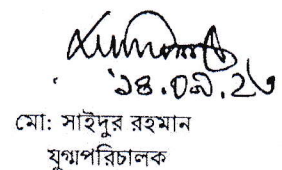 ১৪.০৯.২৬
মো: সাইদুর রহমান
যুগ্মপরিচালক